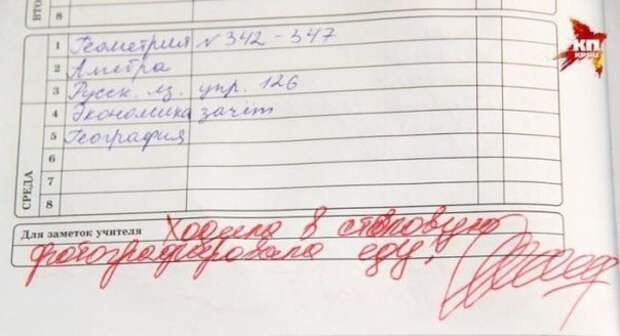 ВТО
8
КП
КРЫМ
СРЕДА
1 Геометрия №342-347
2 Алгебра
3 Русск. яз. упр. 126
4 Экономика зачёт
5 География
6
7
8
Для заметок учителя Ходила в столовую
фотографировала еду!